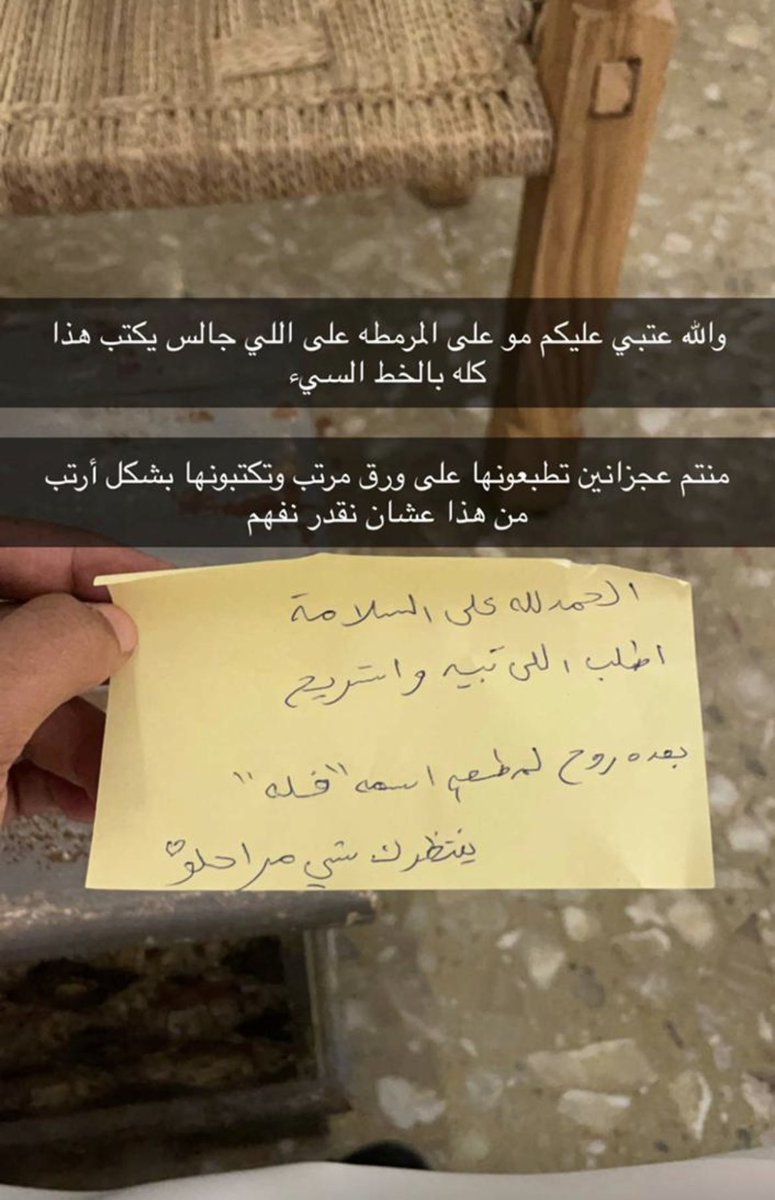 والله عتبي عليكم مو على المرمطه على اللي جالس يكتب هذا
كله بالخط السيء
منتم عجزانين تطبعونها على ورق مرتب وتكتبونها بشكل أرتب
من هذا عشان نقدر نفهم
الحمدلله على السلامة
اطلب اللي تبيه واستريح
بعده روح لمطعم اسمه "فله"
ينتظرك شي مرا حلو♡